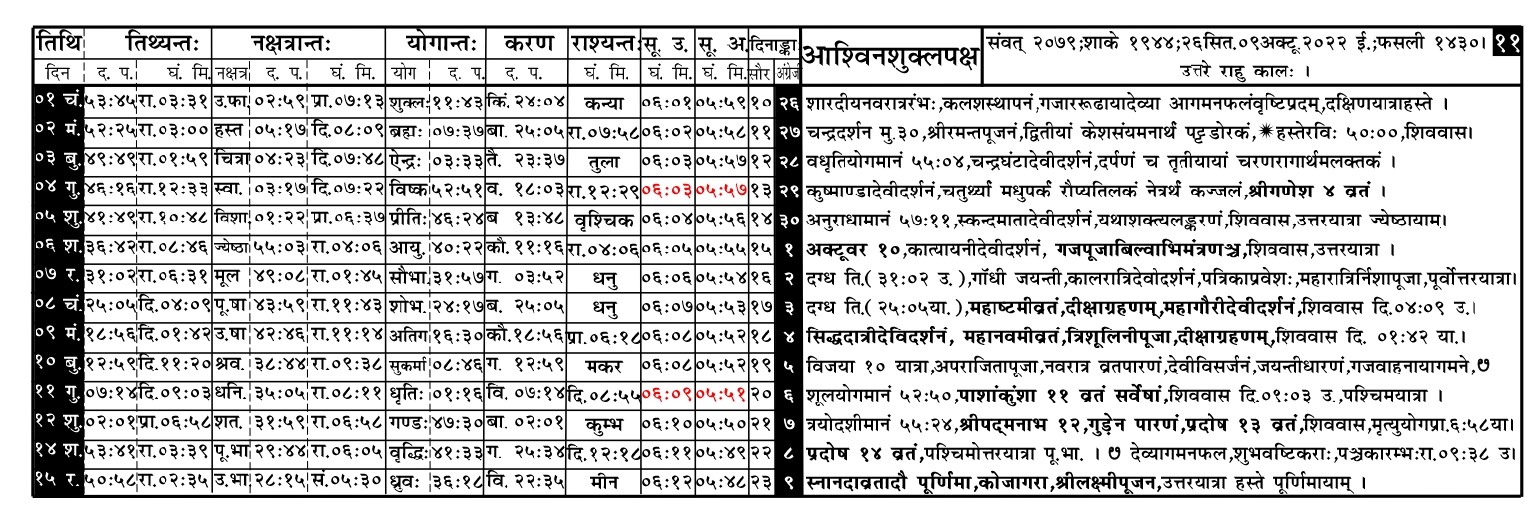 तिथि तिथ्यन्तः नक्षत्रान्तः योगान्तः करण राश्यन्तः सू. उ. सू. अ. दिनाङ्का आश्विनशुक्लपक्ष संवत् २०७९;शाके १९४४;२६सित.०९अक्टू.२०२२ ई.;फसली १४३०। ११
दिन द. प. घं. मि. नक्षत्र द. प. घं. मि. योग द. प. द. प. घं. मि. घं. मि. घं. मि. सौर अंग्रेजी उत्तरे राहु कालः ।
०१ चं. ५३:४५ रा.०३:३१ उ.फा. ०२:५९ प्रा.०७:१३ शुक्लः ११:४३ किं. २४:०४ कन्या ०६:०१ ०५:५९ १० २६ शारदीयनवरात्ररंभः,कलशस्थापनं,गजाररूढायादेव्या आगमनफलंवृष्टिप्रदम्,दक्षिणयात्राहस्ते ।
०२ मं. ५२:२५ रा.०३:०० हस्त ०५:१७ दि.०८:०९ ब्रहाः ०७:३७ बा. २५:०५ रा.०७:५८ ०६:०२ ०५:५८ ११ २७ चन्द्रदर्शन मु.३०,श्रीरमन्तपूजनं,द्वितीयां केशसंयमनार्थ पट्टडोरकं,✷हस्तेरविः ५०:००,शिववास।
०३ बु. ४९:४९ रा.०१:५९ चित्रा ०४:२३ दि.०७:४८ ऐन्द्रः ०३:३३ तै. २३:३७ तुला ०६:०३ ०५:५७ १२ २८ वधृतियोगमानं ५५:०४,चन्द्रघंटादेवीदर्शनं,दर्पणं च तृतीयायां चरणरागार्थमलक्तकं ।
०४ गु. ४६:१६ रा.१२:३३ स्वा. ०३:१७ दि.०७:२२ विष्क ५२:५१ व. १८:०३ रा.१२:२९ ०६:०३ ०५:५७ १३ २९ कुष्माण्डादेवीदर्शनं,चतुर्थ्या मधुपर्क रौप्यतिलकं नेत्रर्थ कज्जलं,श्रीगणेश ४ व्रतं ।
०५ शु. ४१:४९ रा.१०:४८ विशा ०१:२२ प्रा.०६:३७ प्रीतिः ४६:२४ ब १३:४८ वृश्चिक ०६:०४ ०५:५६ १४ ३० अनुराधामानं ५७:११,स्कन्दमातादेवीदर्शनं,यथाशक्त्यलङ्करणं,शिववास,उत्तरयात्रा ज्येष्ठायाम।
०६ श. ३६:४२ रा.०८:४६ ज्येष्ठा ५५:०३ रा.०४:०६ आयु. ४०:२२ कौ. ११:१६ रा.०४:०६ ०६:०५ ०५:५५ १५ १ अक्टूवर १०,कात्यायनीदेवीदर्शनं, गजपूजाबिल्वाभिमंत्रणञ्च,शिववास,उत्तरयात्रा ।
०७ र. ३१:०२ रा.०६:३१ मूल ४९:०८ रा.०१:४५ सौभा. ३१:५७ ग. ०३:५२ धनु ०६:०६ ०५:५४ १६ २ दग्ध ति.( ३१:०२ उ.),गाँधी जयन्ती,कालरात्रिदेवीदर्शनं,पत्रिकाप्रवेशः,महारात्रिर्निशापूजा,पूर्वोत्तरयात्रा।
०८ चं. २५:०५ दि.०४:०९ पू.षा ४३:५९ रा.११:४३ शोभ. २४:१७ ब. २५:०५ धनु ०६:०७ ०५:५३ १७ ३ दग्ध ति.( २५:०५या.),महाष्टमीव्रतं,दीक्षाग्रहणाम्,महागौरीदेवीदर्शनं,शिववास दि.०४:०९ उ.।
०९ मं. १८:५६ दि.०१:४२ उ.षा ४२:४६ रा.११:१४ अतिग १६:३० कौ.१८:५६ प्रा.०६:१८ ०६:०८ ०५:५२ १८ ४ सिद्धदात्रीदेविदर्शनं, महानवमीव्रतं,त्रिशूलिनीपूजा,दीक्षाग्रहणाम्,शिववास दि. ०१:४२ या.।
१० बु. १२:५९ दि.११:२० श्रव. ३८:४४ रा.०९:३८ सुकर्मा ०८:४६ ग. १२:५९ मकर ०६:०८ ०५:५२ १९ ५ विजया १० यात्रा,अपराजितापूजा,नवरात्र व्रतपारणं,देवीविसर्जनं,जयन्तीधारणं,गजवाहनायागमने,७
११ गु. ०७:१४ दि.०९:०३ धनि. ३५:०५ रा.०८:११ धृतिः ०१:१६ वि. ०७:१४ दि.०८:५५ ०६:०९ ०५:५१ २० ६ शूलयोगमानं ५२:५०,पाशांकुंशा ११ व्रतं सर्वेषां,शिववास दि.०९:०३ उ.,पश्चिमयात्रा ।
१२ शु. ०२:०१ प्रा.०६:५८ शत. ३१:५९ रा.०६:५८ गण्डः ४७:३० बा. ०२:०१ कुम्भ ०६:१० ०५:५० २१ ७ त्रयोदशीमानं ५५:२४,श्रीपद्मनाभ १२,गुड़ेन पारणं,प्रदोष १३ व्रतं,शिववास,मृत्युयोगप्रा.६:५८या।
१४ श. ५३:४१ रा.०३:३९ पू.भा २९:४४ रा.०६:०५ वृद्धिः ४१:३३ ग. २५:३४ दि.१२:१८ ०६:११ ०५:४९ २२ ८ प्रदोष १४ व्रतं,पश्चिमोत्तरयात्रा पू.भा. । ७ देव्यागमनफल,शुभवष्टिकराः,पञ्चकारम्भःरा.०९:३८ उ।
१५ र. ५०:५८ रा.०२:३५ उ.भा २८:१५ सं.०५:३० ध्रुवः ३६:१८ वि. २२:३५ मीन ०६:१२ ०५:४८ २३ ९ स्नानदाव्रतादौ पूर्णिमा,कोजागरा,श्रीलक्ष्मीपूजन,उत्तरयात्रा हस्ते पूर्णिमायाम् ।